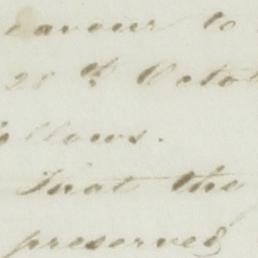 eavour to
20th Octo
llows.
That the
preserved